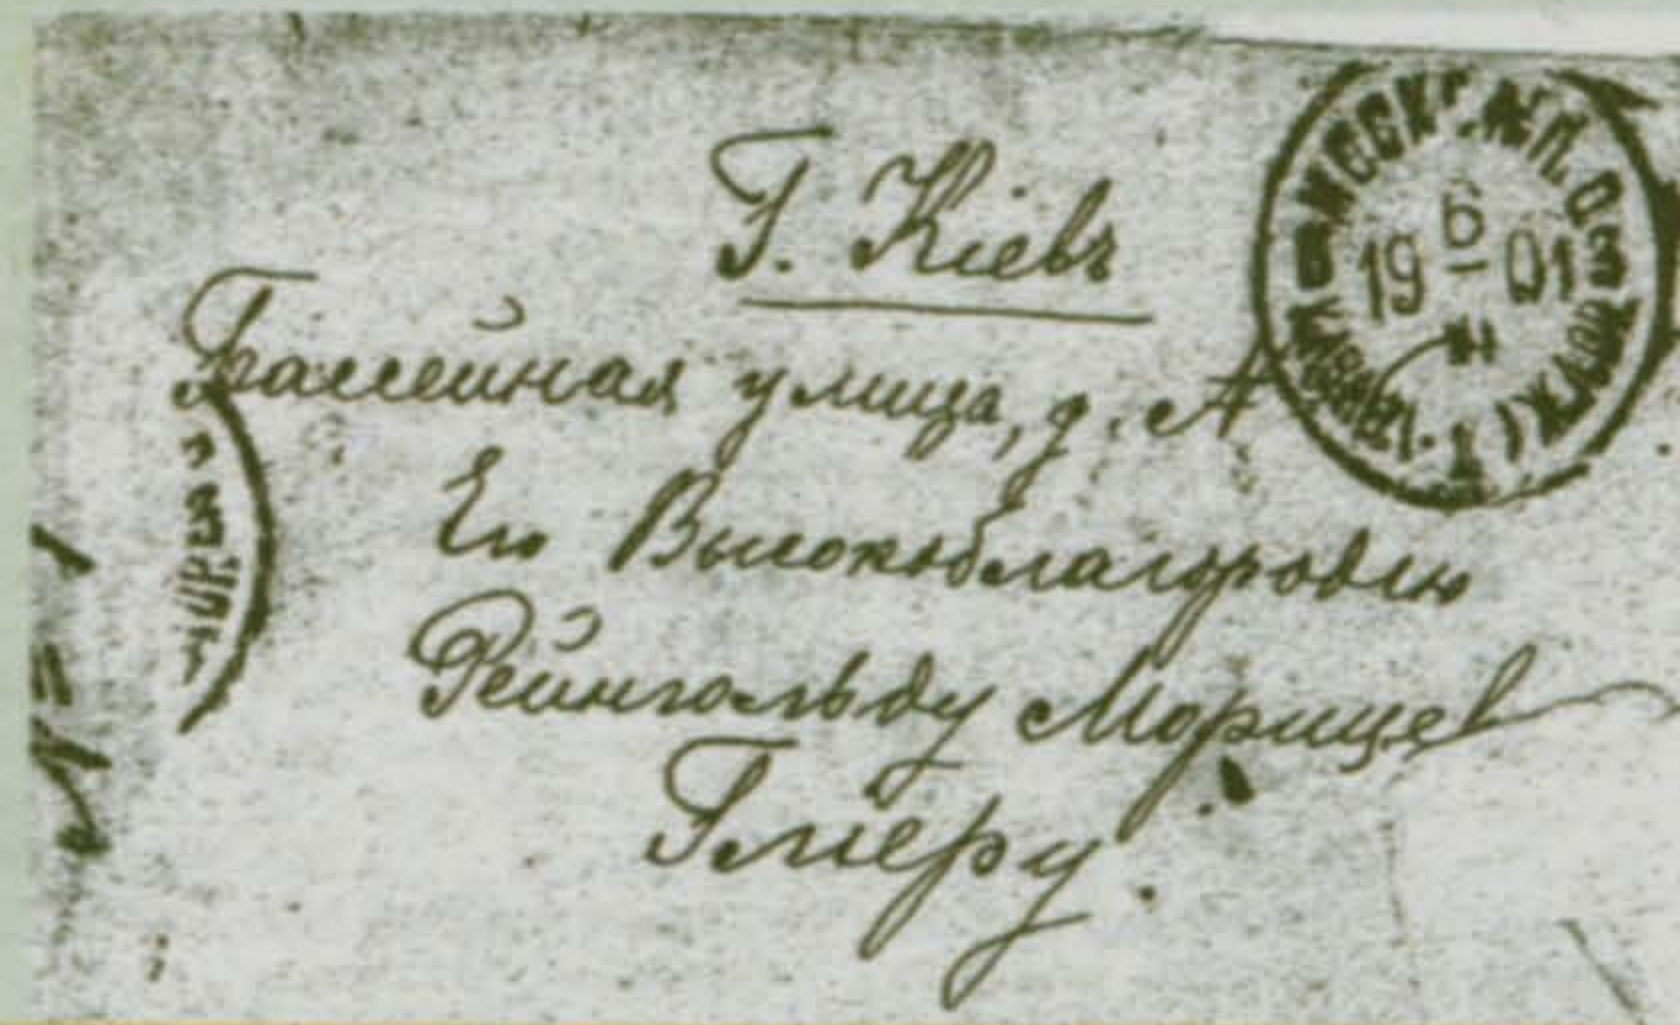 Г. Кіевъ
Бассейная улица, д. №
Его Высокоблагородію
Рейнгольду Морицев
Гліеру.
6
19 01